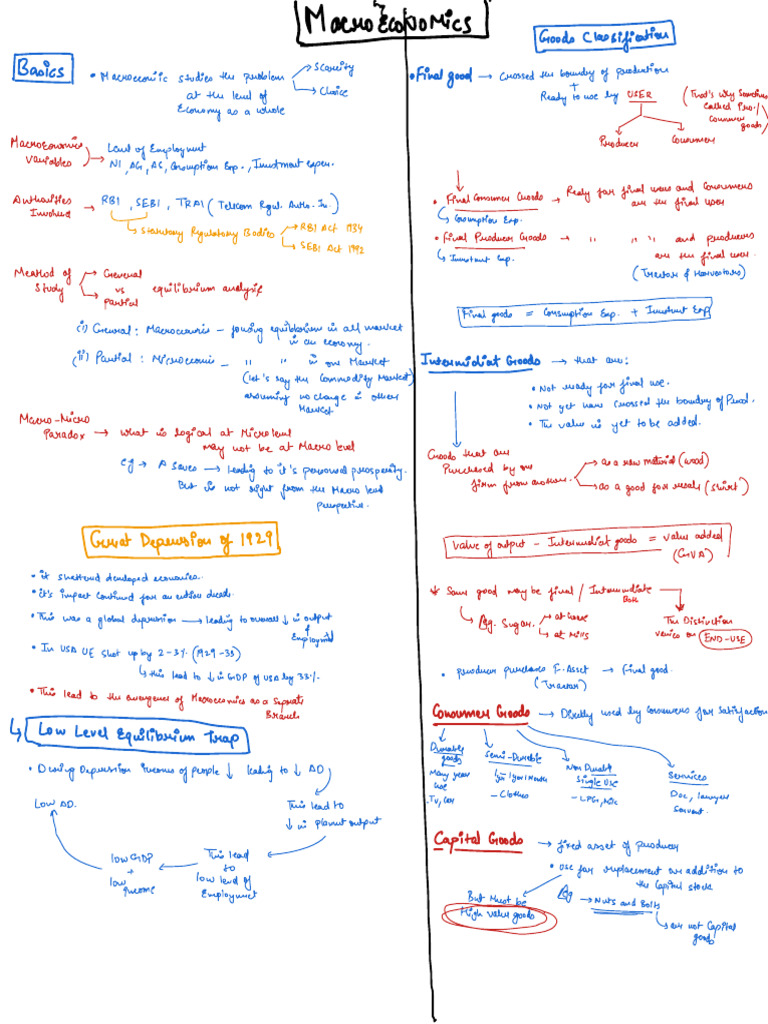 MacroEconomics
Basics
• Macroeconomic studies the problem
at the level of
Economy as a whole
Scarcity
Choice
Macroeconomics
Variables
Level of Employment
NI, AG, AS, Consumption Exp., Investment expen.
Authorities
Involved
RBI, SEBI, TRAI (Telecom Regul. Autho. In.)
Statutory Regulatory Bodies
RBI Act 1934
SEBI Act 1992
Method of
Study
General
vs
Partial
equilibrium analysis
(i) General: Macroeconomic – equilibrium in all market
in an economy.
(ii) Partial: Microeconomic – " " in one Market
(let's say the Commodity Market)
assuming no change in other
Market
Macro-Micro
Paradox
what is logical at Micro level
may not be at Macro level
eg → A saves → leading to it's personal prosperity.
But is not right from the Macro level
perspective.
Great Depression of 1929
• it shattered developed economies.
• it's impact continued for an entire decade.
• This was a global depression → leading to overall ↓ in output
& Employment
• In USA UE shot up by 2-3% (1929-33)
↳ this lead to ↓ in GDP of USA by 33%
• This lead to the emergence of Macroeconomics as a Separate
Branch
↳ Low Level Equilibrium Trap
• During Depression incomes of people ↓ leading to ↓ AD
This lead to
↓ in planned output
This lead
to
low level of
Employment
low GDP
+
low
income
Low AD.
Goods Classification
• Final good → Crossed the boundry of production
+
Ready to use by USER
Producer
Consumer
(That's why Sometimes
Called Pro./
consumer
goods)
• Final Consumer Goods → Ready for final users and Consumers
are the final user
↳ Consumption Exp.
• Final Producer Goods → " " " and producers
are the final user.
↳ Investment Exp.
(Tractor & Harvestors)
Final goods = Consumption Exp. + Investment Exp
Intermidiat Goods → that are:
• Not ready for final use.
• Not yet have crossed the boundry of Prod.
• The value is yet to be added.
Goods that are
Purchased by one
firm from another.
as a raw material (wood)
as a good for resale (shirt)
Value of output - Intermidiat goods = value added
(GVA)
* Same good may be final / Intermediate
Both
Eg. Sugar
at home
at Mills
The Distinction
varies on END-USE
• Producer purchases F. Asset → Final good.
(Tractor)
Consumer Goods → Directly used by consumers for satisfaction
Durable
goods
Many year
use
TV, Car
Semi-Durable
- Clothes
Non Durable
Single Use
- LPG, Milk
Services
Doc, lawyer
servant.
Capital Goods → fixed asset of producer
• Use for replacement or addition to
the Capital stock
But Must be
High value goods
Eg → Nuts and Bolts
↳ are not Capital
goods